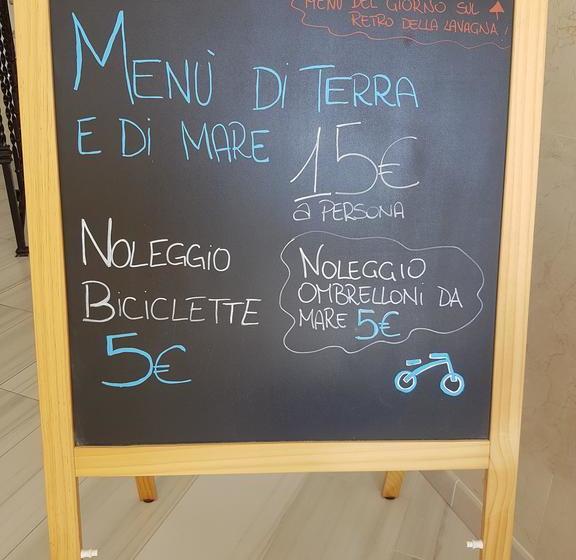 MENÙ DEL GIORNO SUL
RETRO DELLA LAVAGNA!
MENÙ DI TERRA
E DI MARE
15€
a PERSONA
NOLEGGIO
BICICLETTE
5€
NOLEGGIO
OMBRELLONI DA
MARE 5€